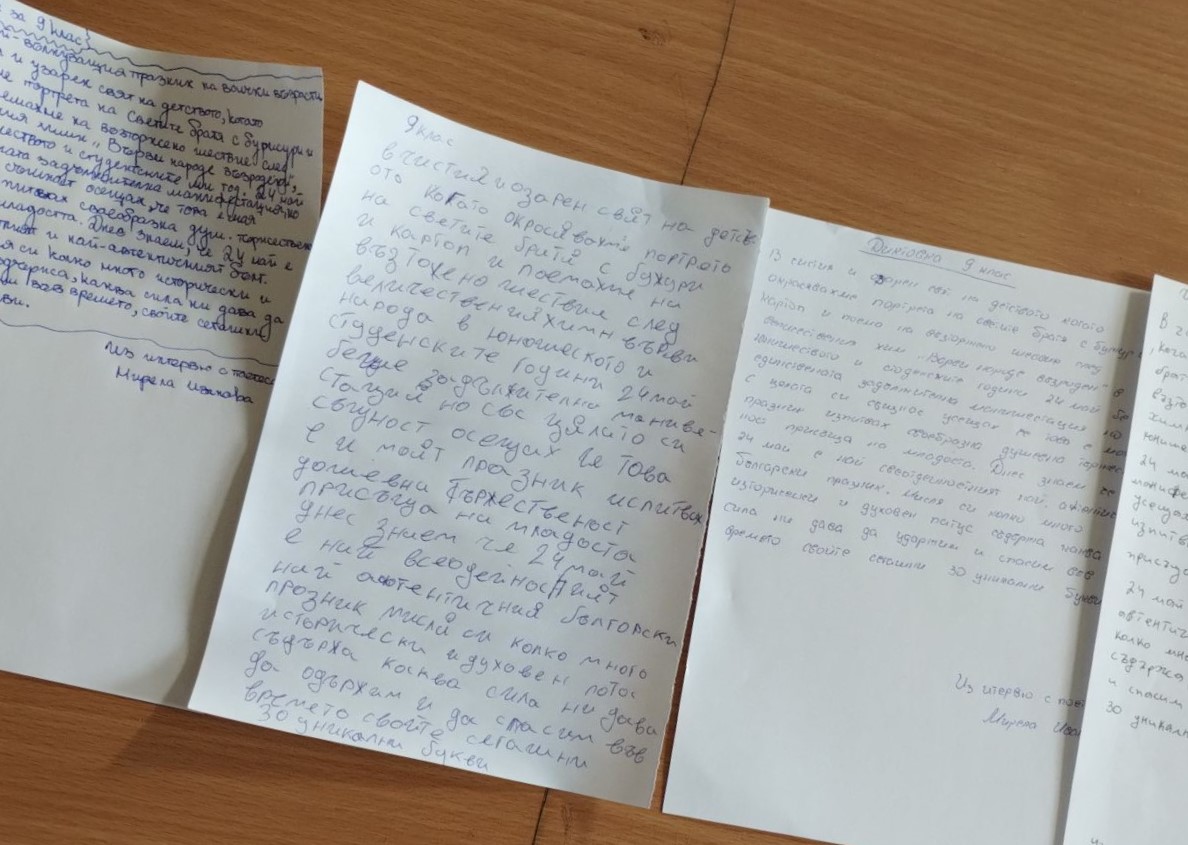 за 9 клас
празник на всички възрасти
и озарен свят на детството, когато
портрета на Светите братя с бушури и
на възторжено шествие след
химн „Върви народе възродени",
и студентските ми год. 24 май
задължителна манифестация, но
същност осещах, че това е моя
своеобразна душ. тържествено
младостта. Днес знаем, че 24 май е
и най-автентичният бълг.
си колко много исторически и
съдържа, каква сила ни дава да
във времето, своите сегашни
Из интервю с поетеса
Мирела Иванова
9 клас
в чистия и озарен свят на детств
ото когато окросявахме портрота
на светите братя с бухури
и картоп и поемахме ни
възтожено шествия след
величествения химн върви
народа в юношеското и
студенските години 24 май
беше задължителни манивя-
стация но със цялато си
същуност осещах че това
е и моят празник испитвах
дошевна тържественост
присъща на младоста
днес знием че 24 май
е ний всеодейностният
ний автентичния болгорски
празник мисля си колко много
исторически и духовен потос
съдържа каква сила ни дава
да одържим и да спасим във
времето свойте сегашни
30 уникални букви
Димовка 9 клас
В чистия и озарен свят на детсвото когато
окрасявахме портрета на светите братя с бужури
картоп и поемо на възторжено шесвие след
величествения химн „Върви народе възродени" в
юношеството и студенските години 24 май бе
единствената задължителна манифестация но
с цялата си същнос усещах че това е мой
празник изпитвах своебразна душевна тържес
нос присъща на младоста. Днес знаем че
24 май е най своейденностният най автентич
български празник. Мисля си колко много
изторически и духовен патус съдържа каква
сила ни дава да удържим и спасим във
времето свойте сегашни 30 уникални букви
Из итервю с пое
Мирела Ива
В чи
, Кога
брат
възто
химн
юноше
24 ма
маниф
усещах
изпитв
присъщ
24 май
автентич
колко мно
съдържа
и спасим
30 уникалн